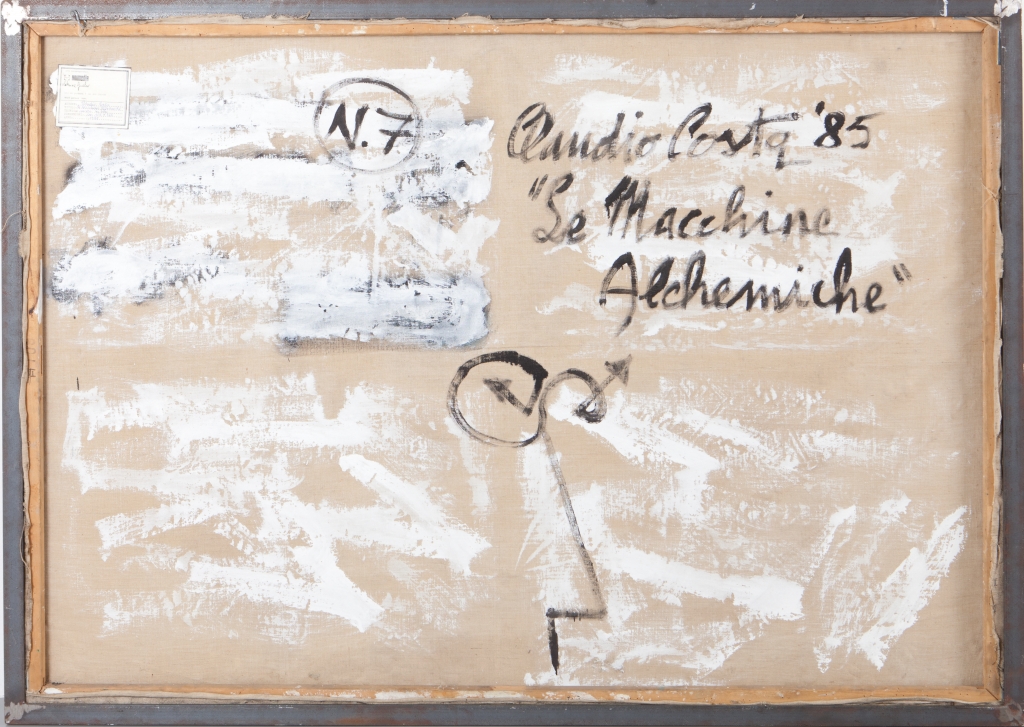 N.7
Claudio Costa '85
"Le Macchine
Alchemiche"